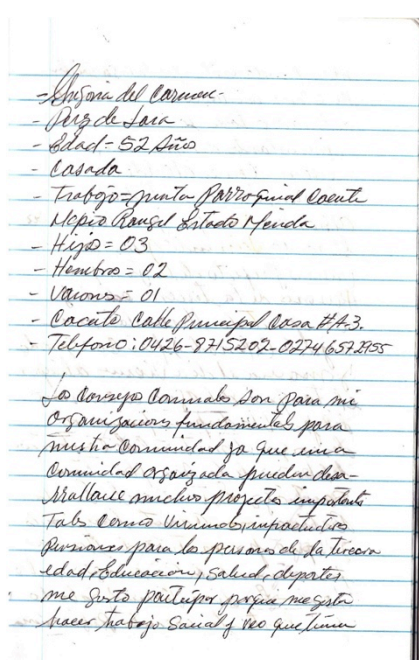 - del Carmen -
- Perez de Lara
- Edad - 52 Año
- Casada
- Trabajo = junta Parroquial Cacute
Mcpio Rangel Estado Merida
- Hijos = 03
- Hembras = 02
- Varones = 01
- Cacute Calle Principal Casa #A-3.
- Telefono: 0426-8715202-02746572955
Los Consejos Comunales Son para mi
organizaciones fundamentales para
nuestra Comunidad ya que en una
Comunidad organizada pueden desa-
rrallarse muchos projectos importante
Tales Como Viviendas,
Pensiones para las personas de la tercera
edad, Educacion, Salud, deportes
me gusta participar porque me gusta
hacer trabajo Social y veo que tiene